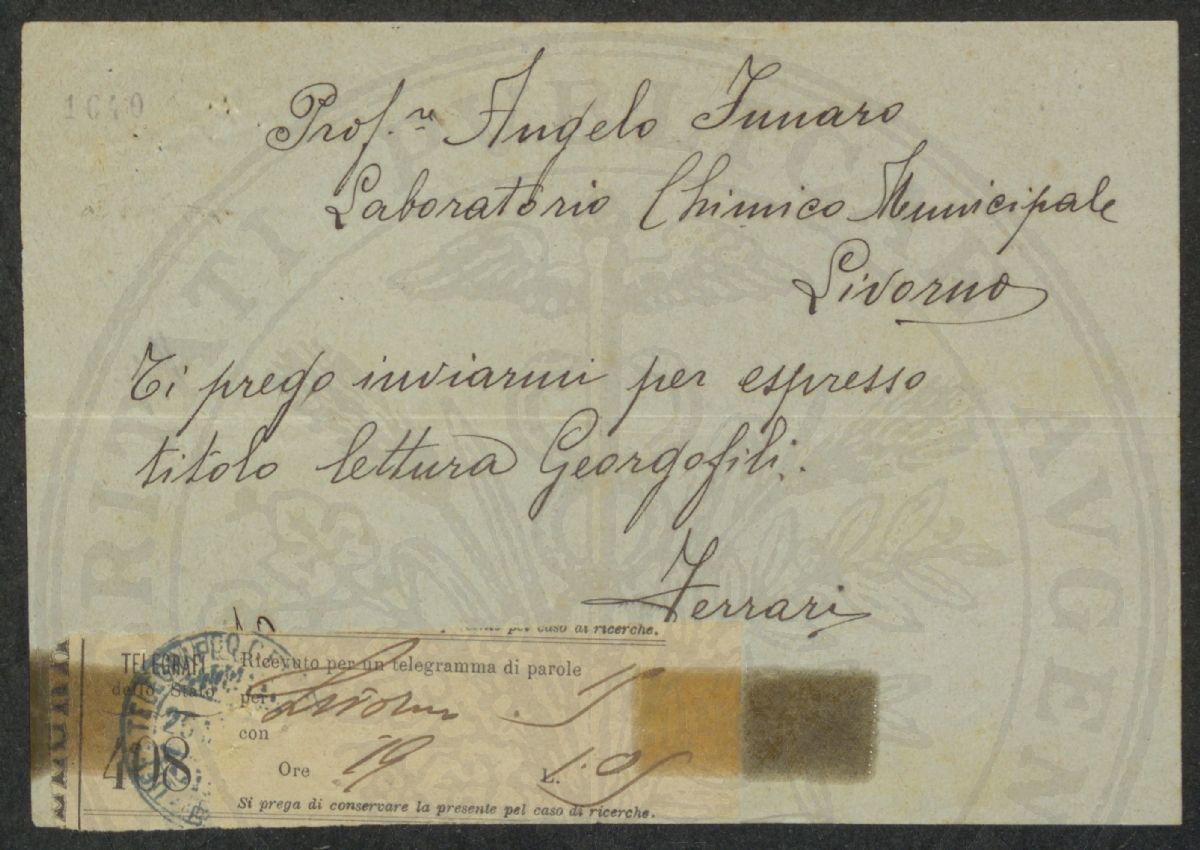 1640
Prof.r Angelo Funaro
Laboratorio Chimico Municipale
Livorno
Ti prego inviarmi per espresso
titolo lettura Georgofili.
Ferrari
pel caso di ricerche.
TELEGRAFI
dello Stato
408
Ricevuto per un telegramma di parole 15
per Livorno
con
Ore 19 L. 1.05
Si prega di conservare la presente pel caso di ricerche.